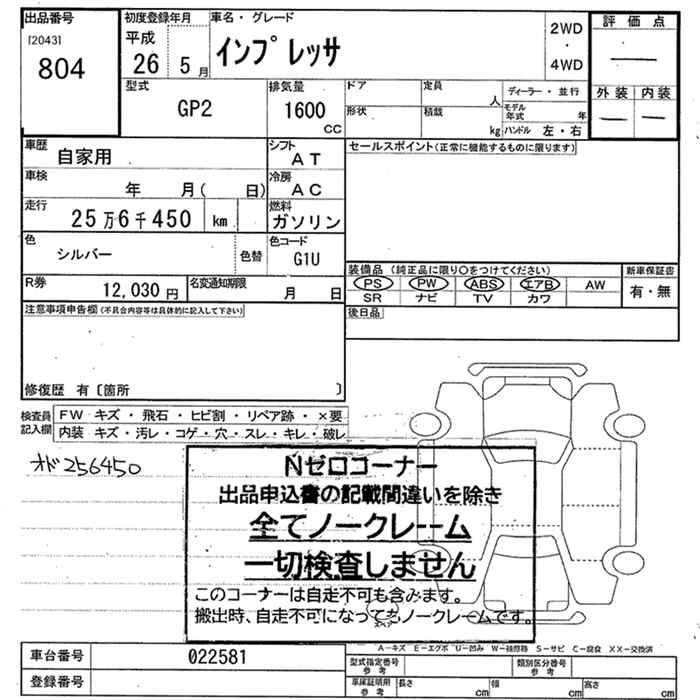 出品番号
[2043]
804
初度登録年月
平成
26 5月
車名・グレード
インプレッサ
2WD
・
4WD
評価点
—
外装 内装
— —
型式
GP2
排気量
1600
CC
ドア
定員
人
形状
積載
kg
ディーラー・並行
モデル年式 年
ハンドル 左・右
車歴
自家用
シフト
AT
セールスポイント(正常に機能するものに限ります)
車検
年 月( 日)
冷房
AC
走行
25万6千450 km
燃料
ガソリン
色
シルバー
色替
色コード
G1U
装備品 (純正品に限り○をつけてください)
新車保証書
PS PW ABS エアB AW
SR ナビ TV カワ
有・無
R券
12,030円
名変通知期限
月 日
後日品
注意事項申告欄(不具合内容等は具体的に記入して下さい)
修復歴 有〔箇所 〕
検査員記入欄
FW キズ・飛石・ヒビ割・リペア跡・×要
内装 キズ・汚レ・コゲ・穴・スレ・キレ・破レ
オド256450
Nゼロコーナー
出品申込書の記載間違いを除き
全てノークレーム
一切検査しません
このコーナーは自走不可も含みます。
搬出時、自走不可になってもノークレームです。
スペア
A-キズ E-エグボ U-凹み W-補修跡 S-サビ C-腐食 XX-交換済
車台番号
022581
登録番号
型式指定番号
参考
類別区分番号
参考
車庫証明用
参考
長さ cm
幅 cm
高さ cm